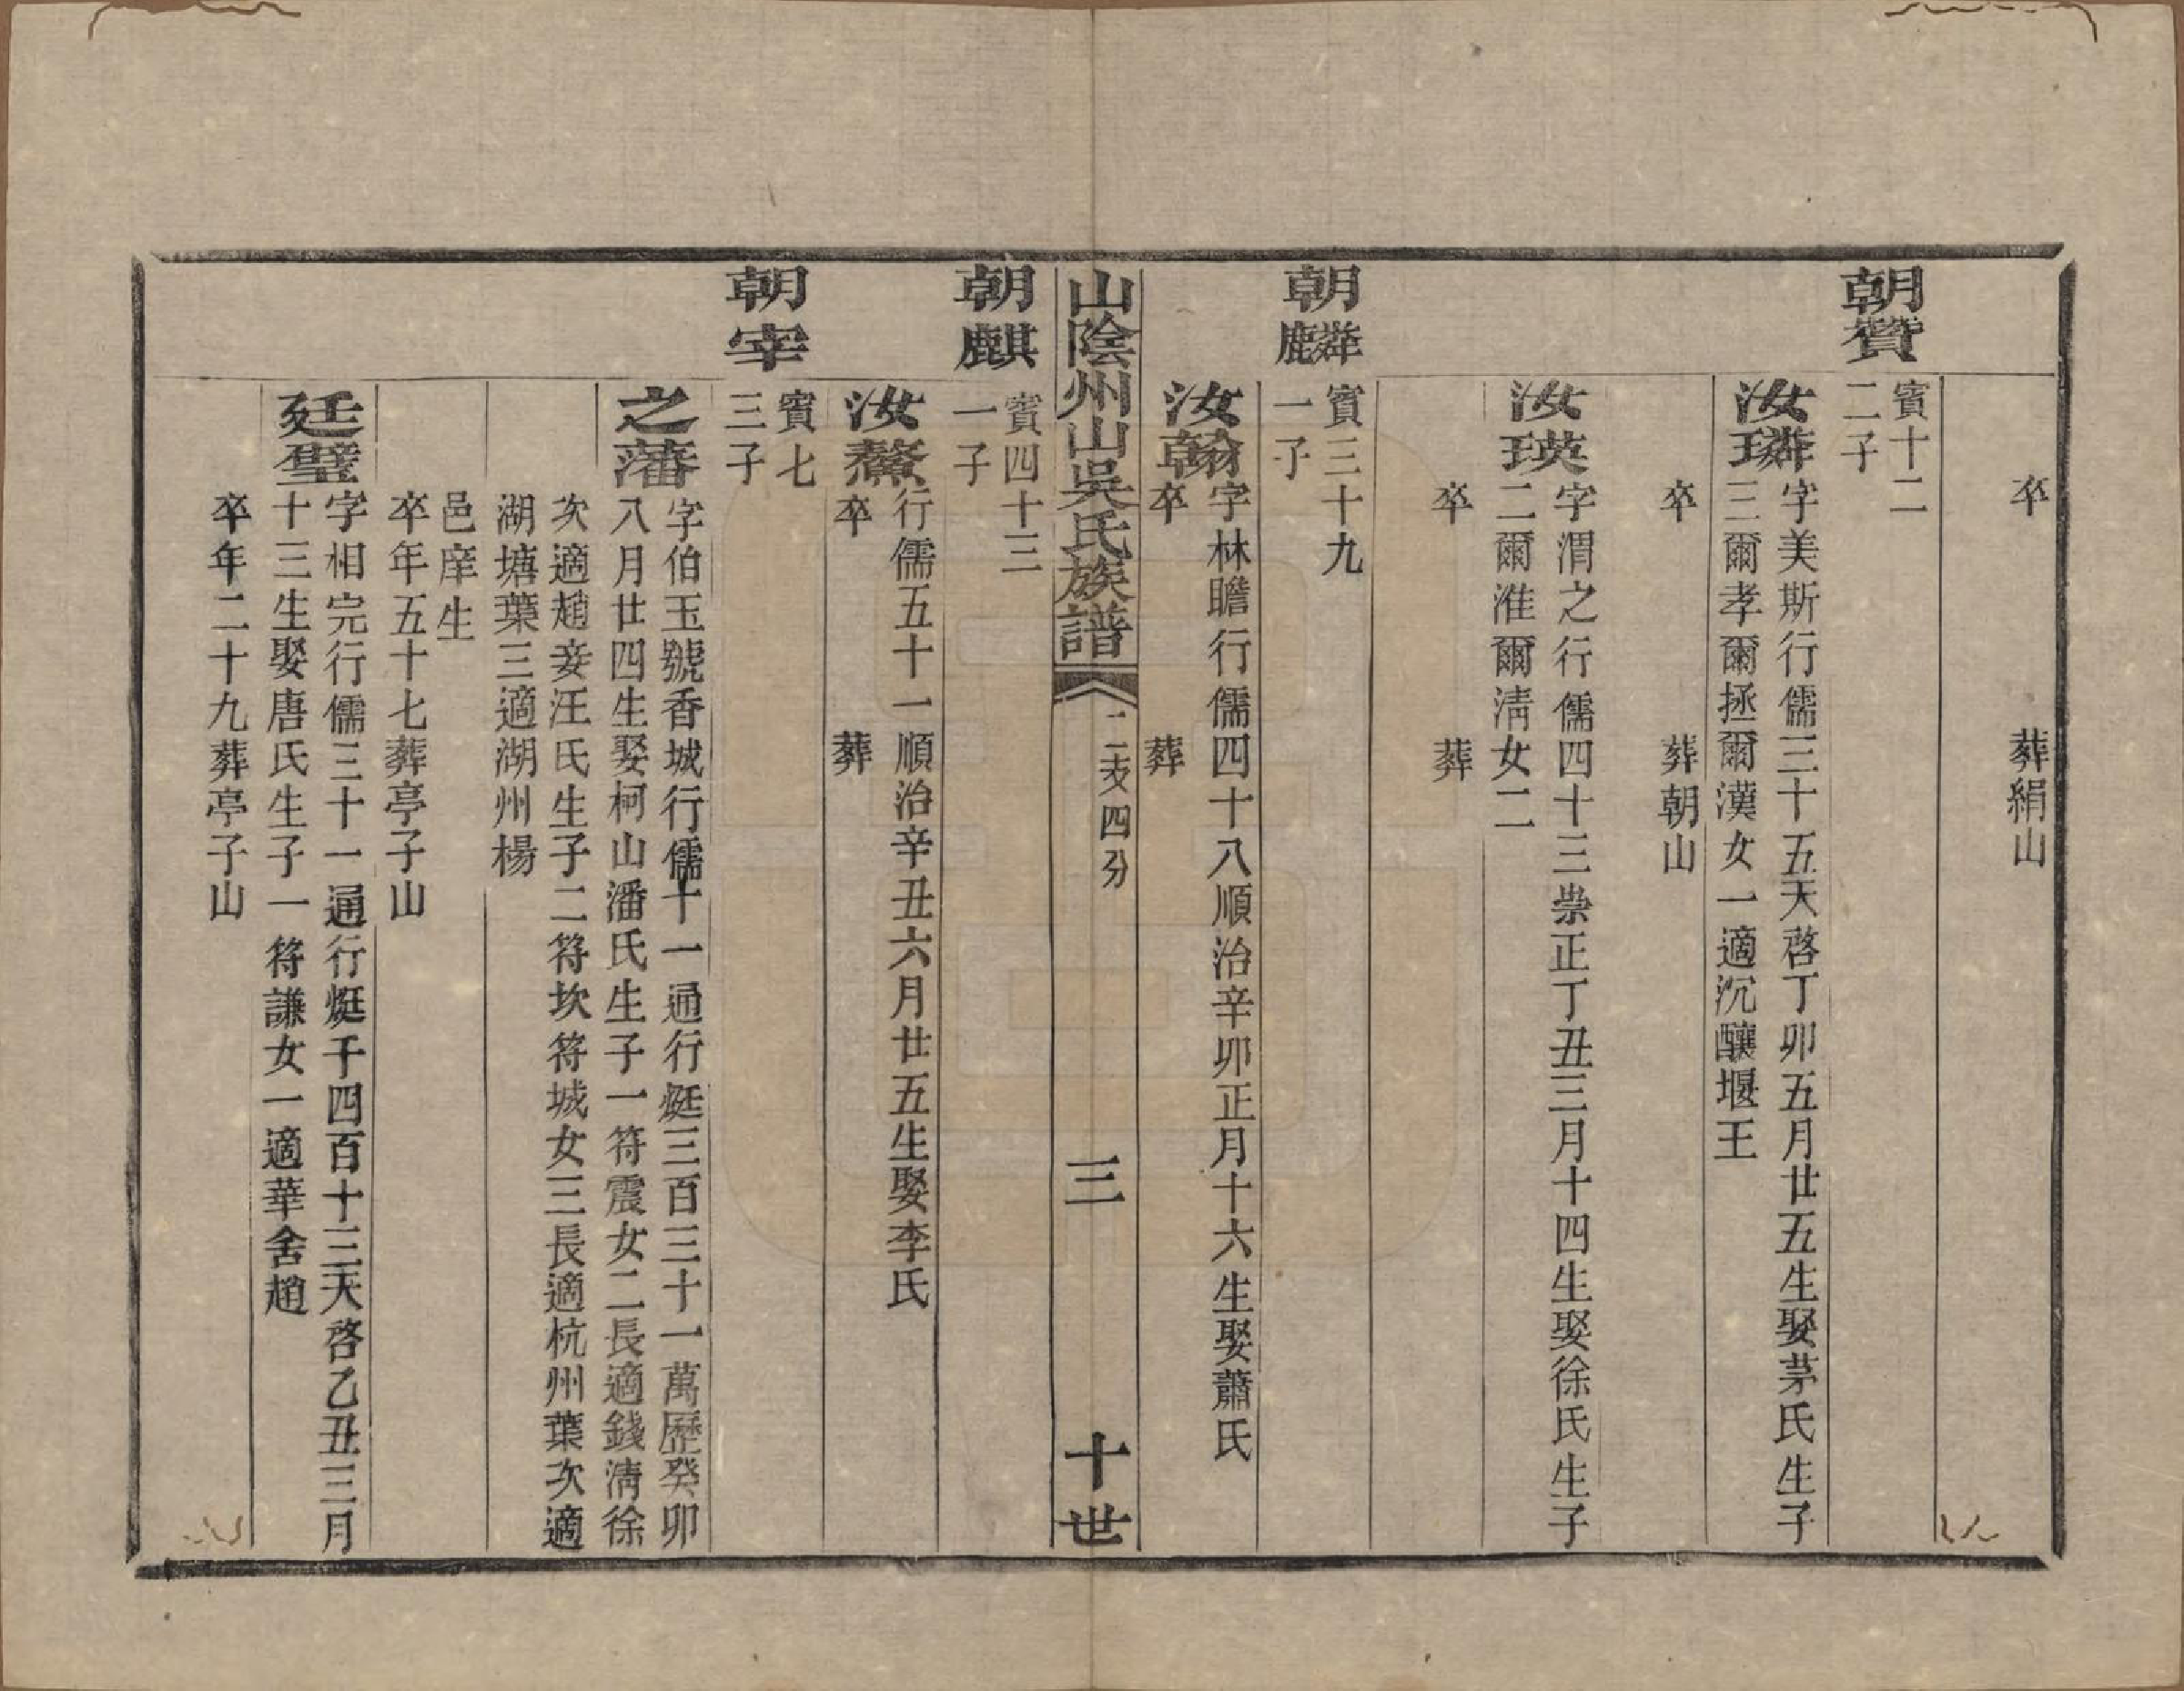 卒　葬絹山
朝贊
賓十二
二子
汝璘
字美斯行儒三十五天啓丁卯五月廿五生娶茅氏生子
三爾孝爾拯爾漢女一適沉釀堰王
卒　葬朝山
汝瑛
字渭之行儒四十三崇正丁丑三月十四生娶徐氏生子
二爾淮爾淸女二
卒　葬
朝麟
賓三十九
一子
汝翰
字林瞻行儒四十八順治辛卯正月十六生娶蕭氏
卒　葬
山陰州山吳氏族譜
二支四分
三
十世
朝麒
賓四十三
一子
汝鰲
行儒五十一順治辛丑六月廿五生娶李氏
卒　葬
朝宰
賓七
三子
之藩
字伯玉號香城行儒十一通行烶三百三十一萬歷癸卯
八月廿四生娶柯山潘氏生子一符震女二長適錢淸徐
次適趙妾汪氏生子二符坎符城女三長適杭州葉次適
湖塘葉三適湖州楊
邑庠生
卒年五十七葬亭子山
廷璧
字相完行儒三十一通行烶千四百十三天啓乙丑三月
十三生娶唐氏生子一符謙女一適華舍趙
卒年二十九葬亭子山